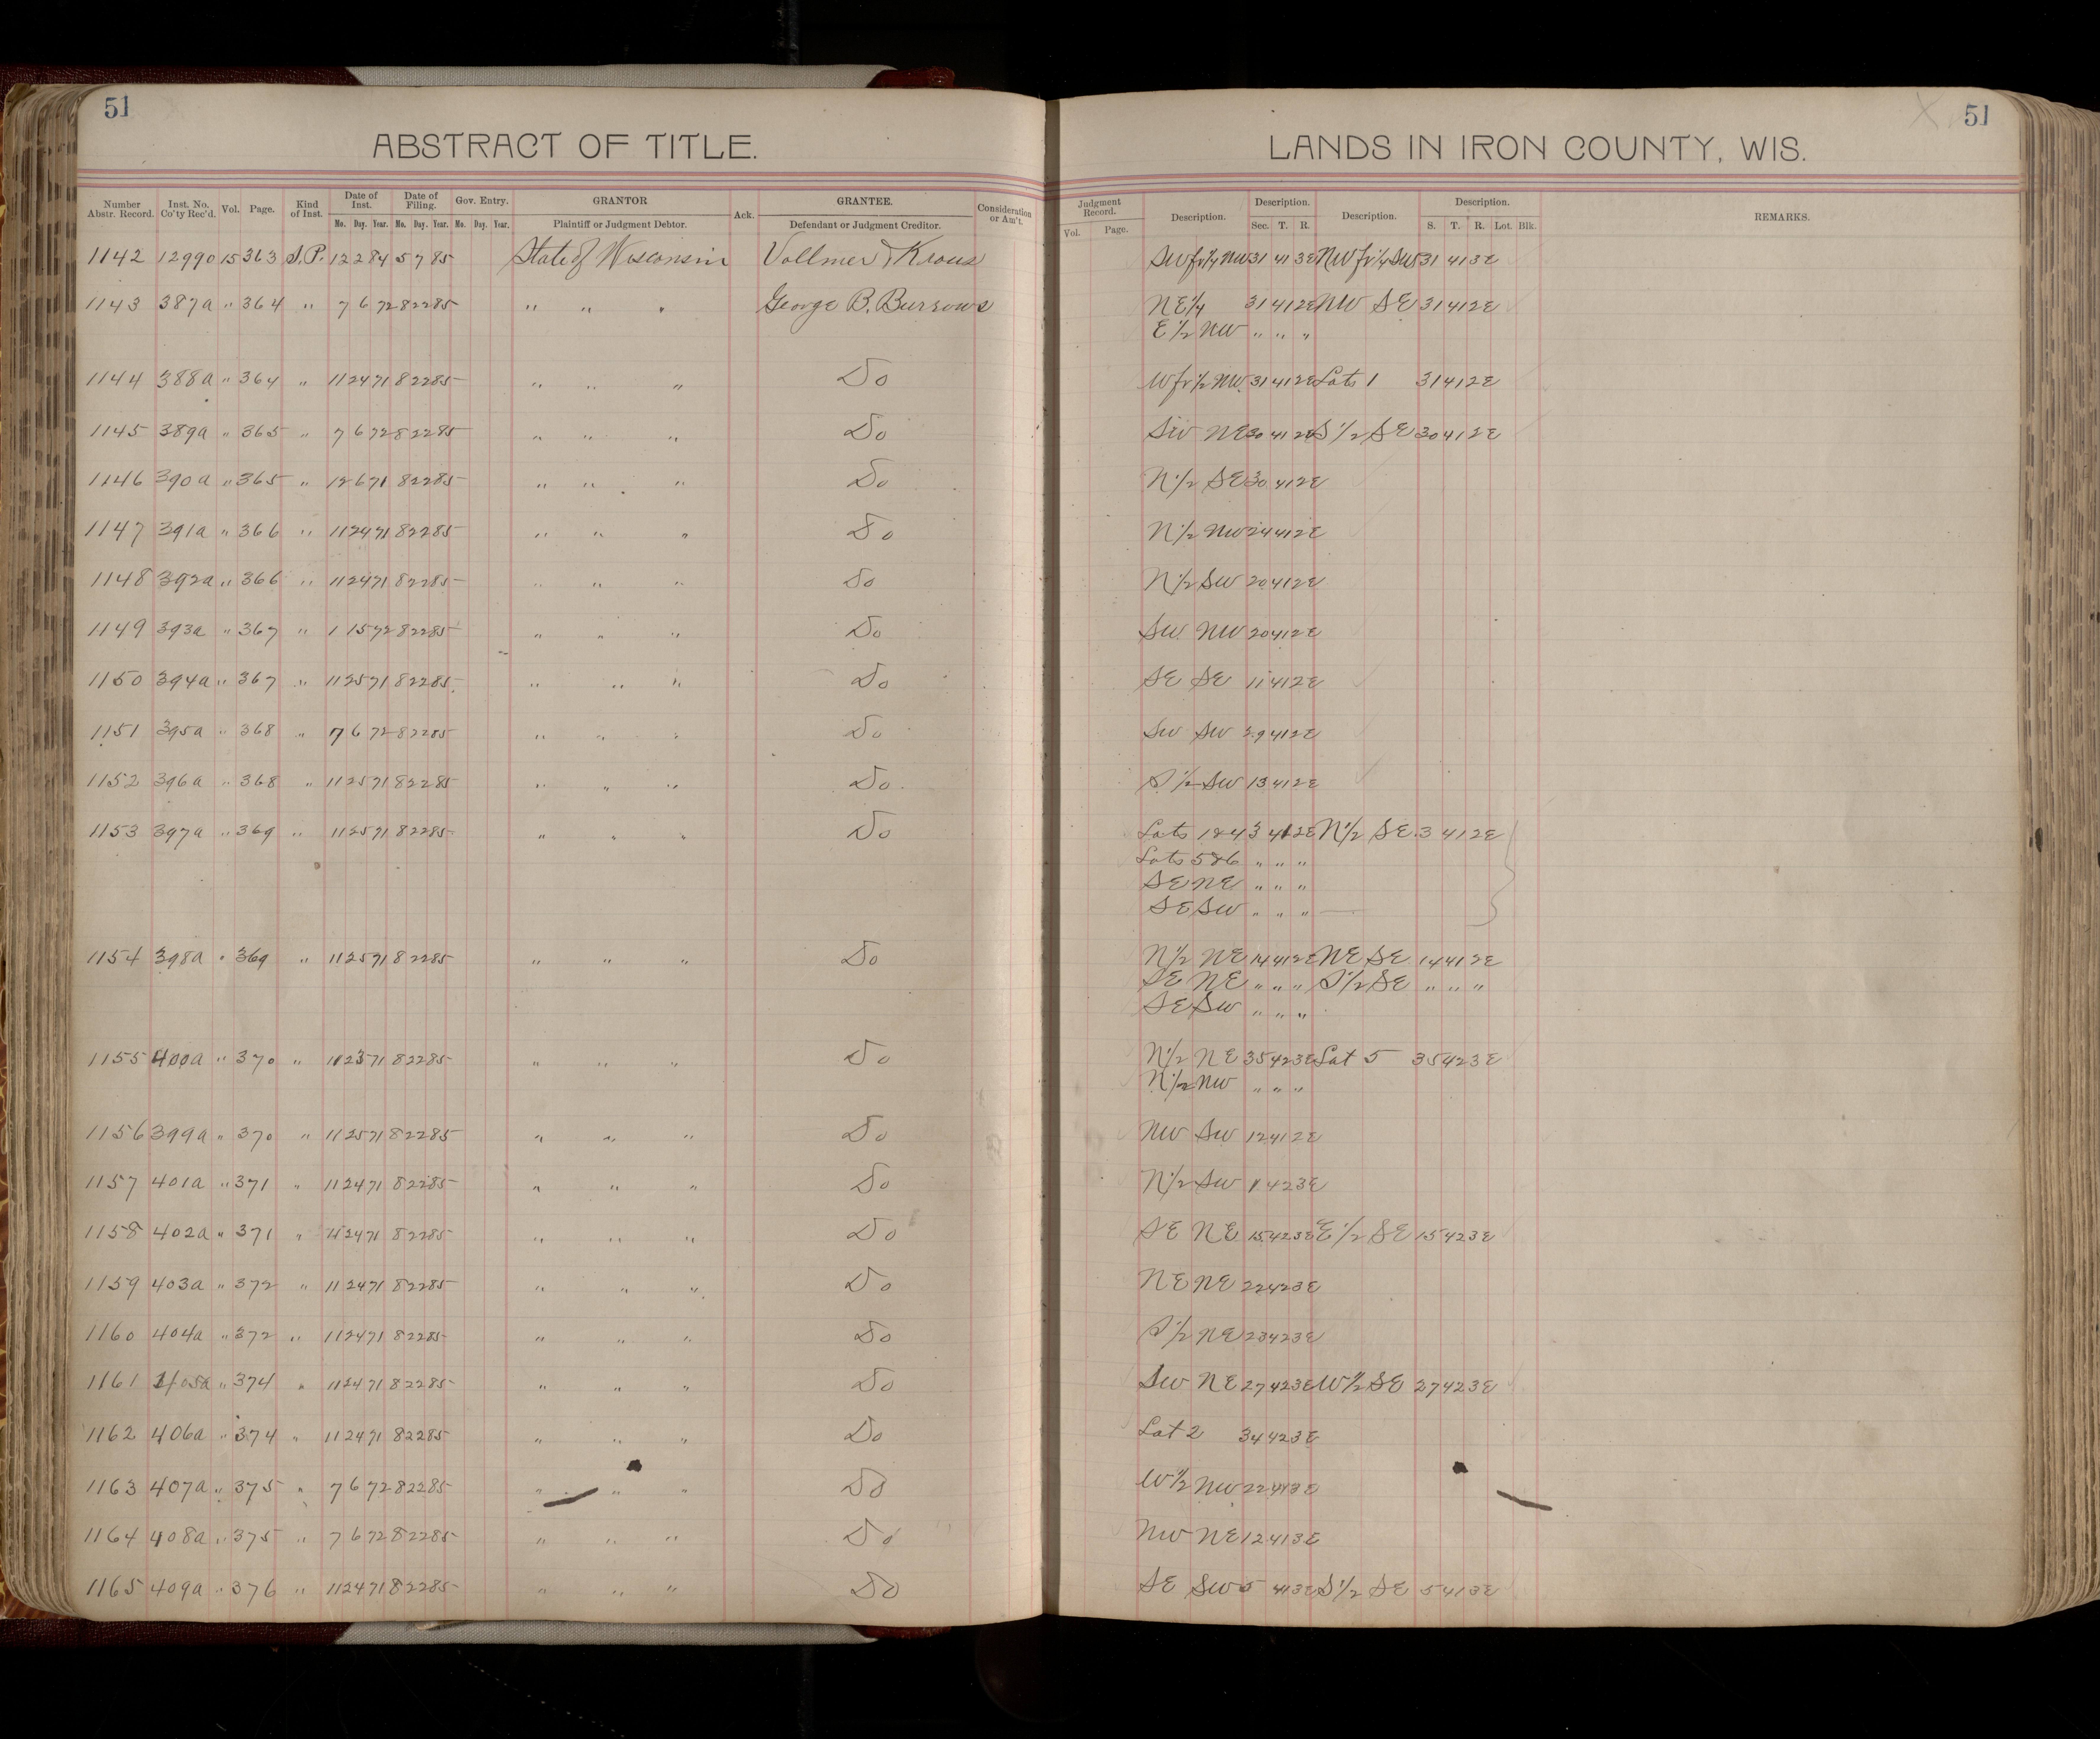 51
51
ABSTRACT OF TITLE.
LANDS IN IRON COUNTY, WIS.
Number Abstr. Record. Inst. No. Co'ty Rec'd. Vol. Page. Kind of Inst. Date of Inst. Mo. Day. Year. Date of Filing. Mo. Day. Year. Gov. Entry. Mo. Day. Year. GRANTOR Plaintiff or Judgment Debtor. Ack. GRANTEE. Defendant or Judgment Creditor. Consideration or Am't. Judgment Record. Vol. Page. Description. Description. Sec. T. R. Description. Description. S. T. R. Lot. Blk. REMARKS.
1142 12990 15 363 S.P. 12 2 84 5 7 85 State of Wisconsin Vollmer & Kraus SW fr 1/4 NW 31 41 3E NW fr 1/4 SW 31 41 3E
1143 387a " 364 " 7 6 72 8 22 85 " " " George B. Burrows NE 1/4 31 41 2E NW SE 31 41 2E
E 1/2 NW " " "
1144 388a " 364 " 11 24 71 8 22 85 " " " Do W fr 1/2 NW 31 41 2E Lots 1 31 41 2E
1145 389a " 365 " 7 6 72 8 22 85 " " " Do SW NE 30 41 2E S 1/2 SE 30 41 2E
1146 390a " 365 " 12 6 71 8 22 85 " " " Do N 1/2 SE 30 41 2E
1147 391a " 366 " 11 24 71 8 22 85 " " " Do N 1/2 NW 24 41 2E
1148 392a " 366 " 11 24 71 8 22 85 " " " Do N 1/2 SW 20 41 2E
1149 393a " 367 " 1 15 72 8 22 85 " " " Do SW NW 20 41 2E
1150 394a " 367 " 11 25 71 8 22 85 " " " Do SE SE 11 41 2E
1151 395a " 368 " 7 6 72 8 22 85 " " " Do SW SW 29 41 2E
1152 396a " 368 " 11 25 71 8 22 85 " " " Do S 1/2 SW 13 41 2E
1153 397a " 369 " 11 25 71 8 22 85 " " " Do Lots 1&4 3 41 2E N 1/2 SE 3 41 2E
Lots 5&6 " " "
SE NE " " "
SE SW " " "
1154 398a " 369 " 11 25 71 8 22 85 " " " Do N 1/2 NE 14 41 2E NE SE 14 41 2E
SE NE " " " S 1/2 SE " " "
SE SW " " "
1155 400a " 370 " 11 23 71 8 22 85 " " " Do N 1/2 NE 35 42 3E Lot 5 35 42 3E
N 1/2 NW " " "
1156 399a " 370 " 11 25 71 8 22 85 " " " Do NW SW 12 41 2E
1157 401a " 371 " 11 24 71 8 22 85 " " " Do N 1/2 SW 1 42 3E
1158 402a " 371 " 11 24 71 8 22 85 " " " Do SE NE 15 42 3E E 1/2 SE 15 42 3E
1159 403a " 372 " 11 24 71 8 22 85 " " " Do NE NE 22 42 3E
1160 404a " 372 " 11 24 71 8 22 85 " " " Do S 1/2 NE 23 42 3E
1161 405a " 374 " 11 24 71 8 22 85 " " " Do SW NE 27 42 3E W 1/2 SE 27 42 3E
1162 406a " 374 " 11 24 71 8 22 85 " " " Do Lot 2 34 42 3E
1163 407a " 375 " 7 6 72 8 22 85 " " " Do W 1/2 NW 22 3E
1164 408a " 375 " 7 6 72 8 22 85 " " " Do NW NE 12 41 3E
1165 409a " 376 " 11 24 71 8 22 85 " " " Do SE SW 5 41 3E S 1/2 SE 5 41 3E